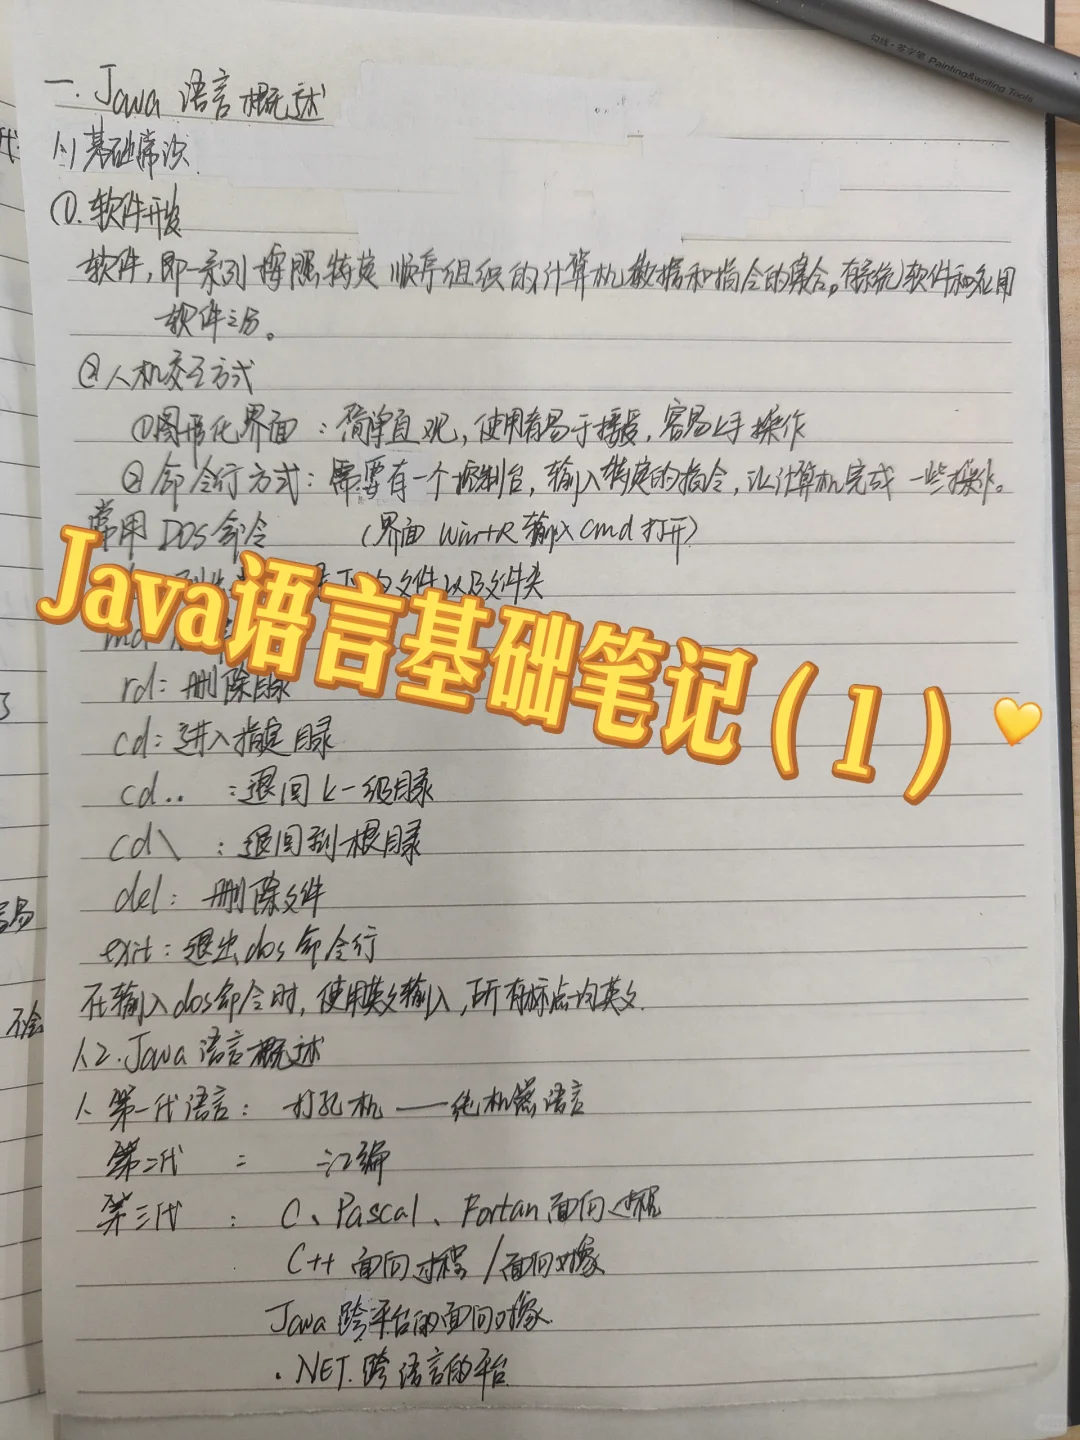 勾线·签字笔 Painting&Writing Tools
一. Java 语言概述
1.1 基础常识
①. 软件开发
软件,即一系列按照特定顺序组织的计算机数据和指令的集合。有系统软件和应用
软件之分。
② 人机交互方式
①图形化界面：简单直观，使用者易于接受，容易上手操作
② 命令行方式：需要有一个控制台，输入特定的指令，让计算机完成一些操作。
常用 DOS 命令 (界面 Win+R 输入 cmd 打开)
文件以及文件夹
Java语言基础笔记（1）💛
md
rd：删除目录
cd：进入指定目录
cd.. ：退回上一级目录
cd\ ：退回到根目录
del：删除文件
exit：退出dos命令行
在输入dos命令时，使用英文输入，所有标点均英文.
1.2.Java 语言概述
1. 第一代语言： 打孔机 —— 纯机器语言
第二代 ： 汇编
第三代 ： C、Pascal、Fortan 面向过程
C++ 面向过程/面向对象
Java 跨平台的面向对象.
.NET. 跨语言的平台
3
容易
不会